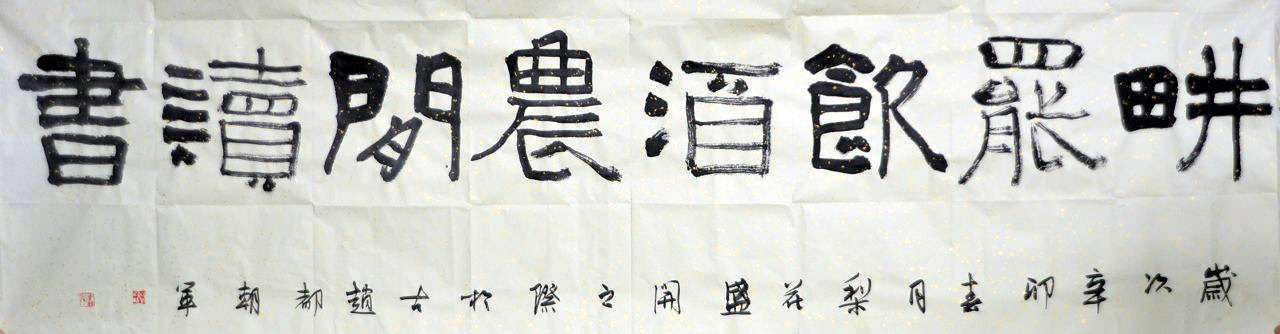 畊罷飲酒農閒讀書
歲次辛卯春月梨花盛開之際於古趙都朝軍